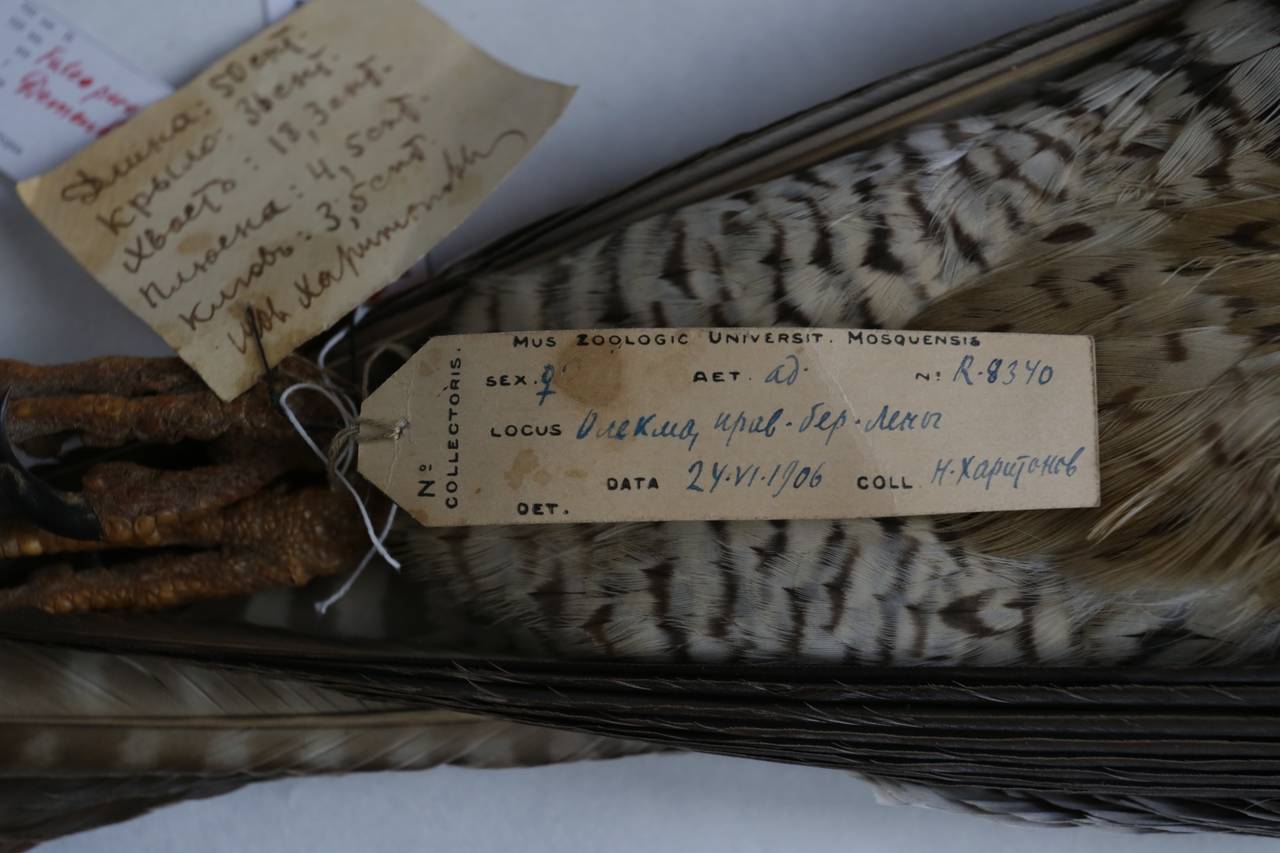 Falco
Длина: 50 снт.
Крыло: 36 снт.
Хвостъ: 18,3 снт.
Плюсна: 4,5 снт.
Клювъ: 3,5 снт.
Харитоновъ
MUS ZOOLOGIC UNIVERSIT. MOSQUENSIS
No COLLECTORIS.
SEX. ♀ AET. ad. No R-8340
LOCUS Олекма, прав. бер. Лены
DATA 24.VI.1906 COLL. Н. Харитонов
DET.